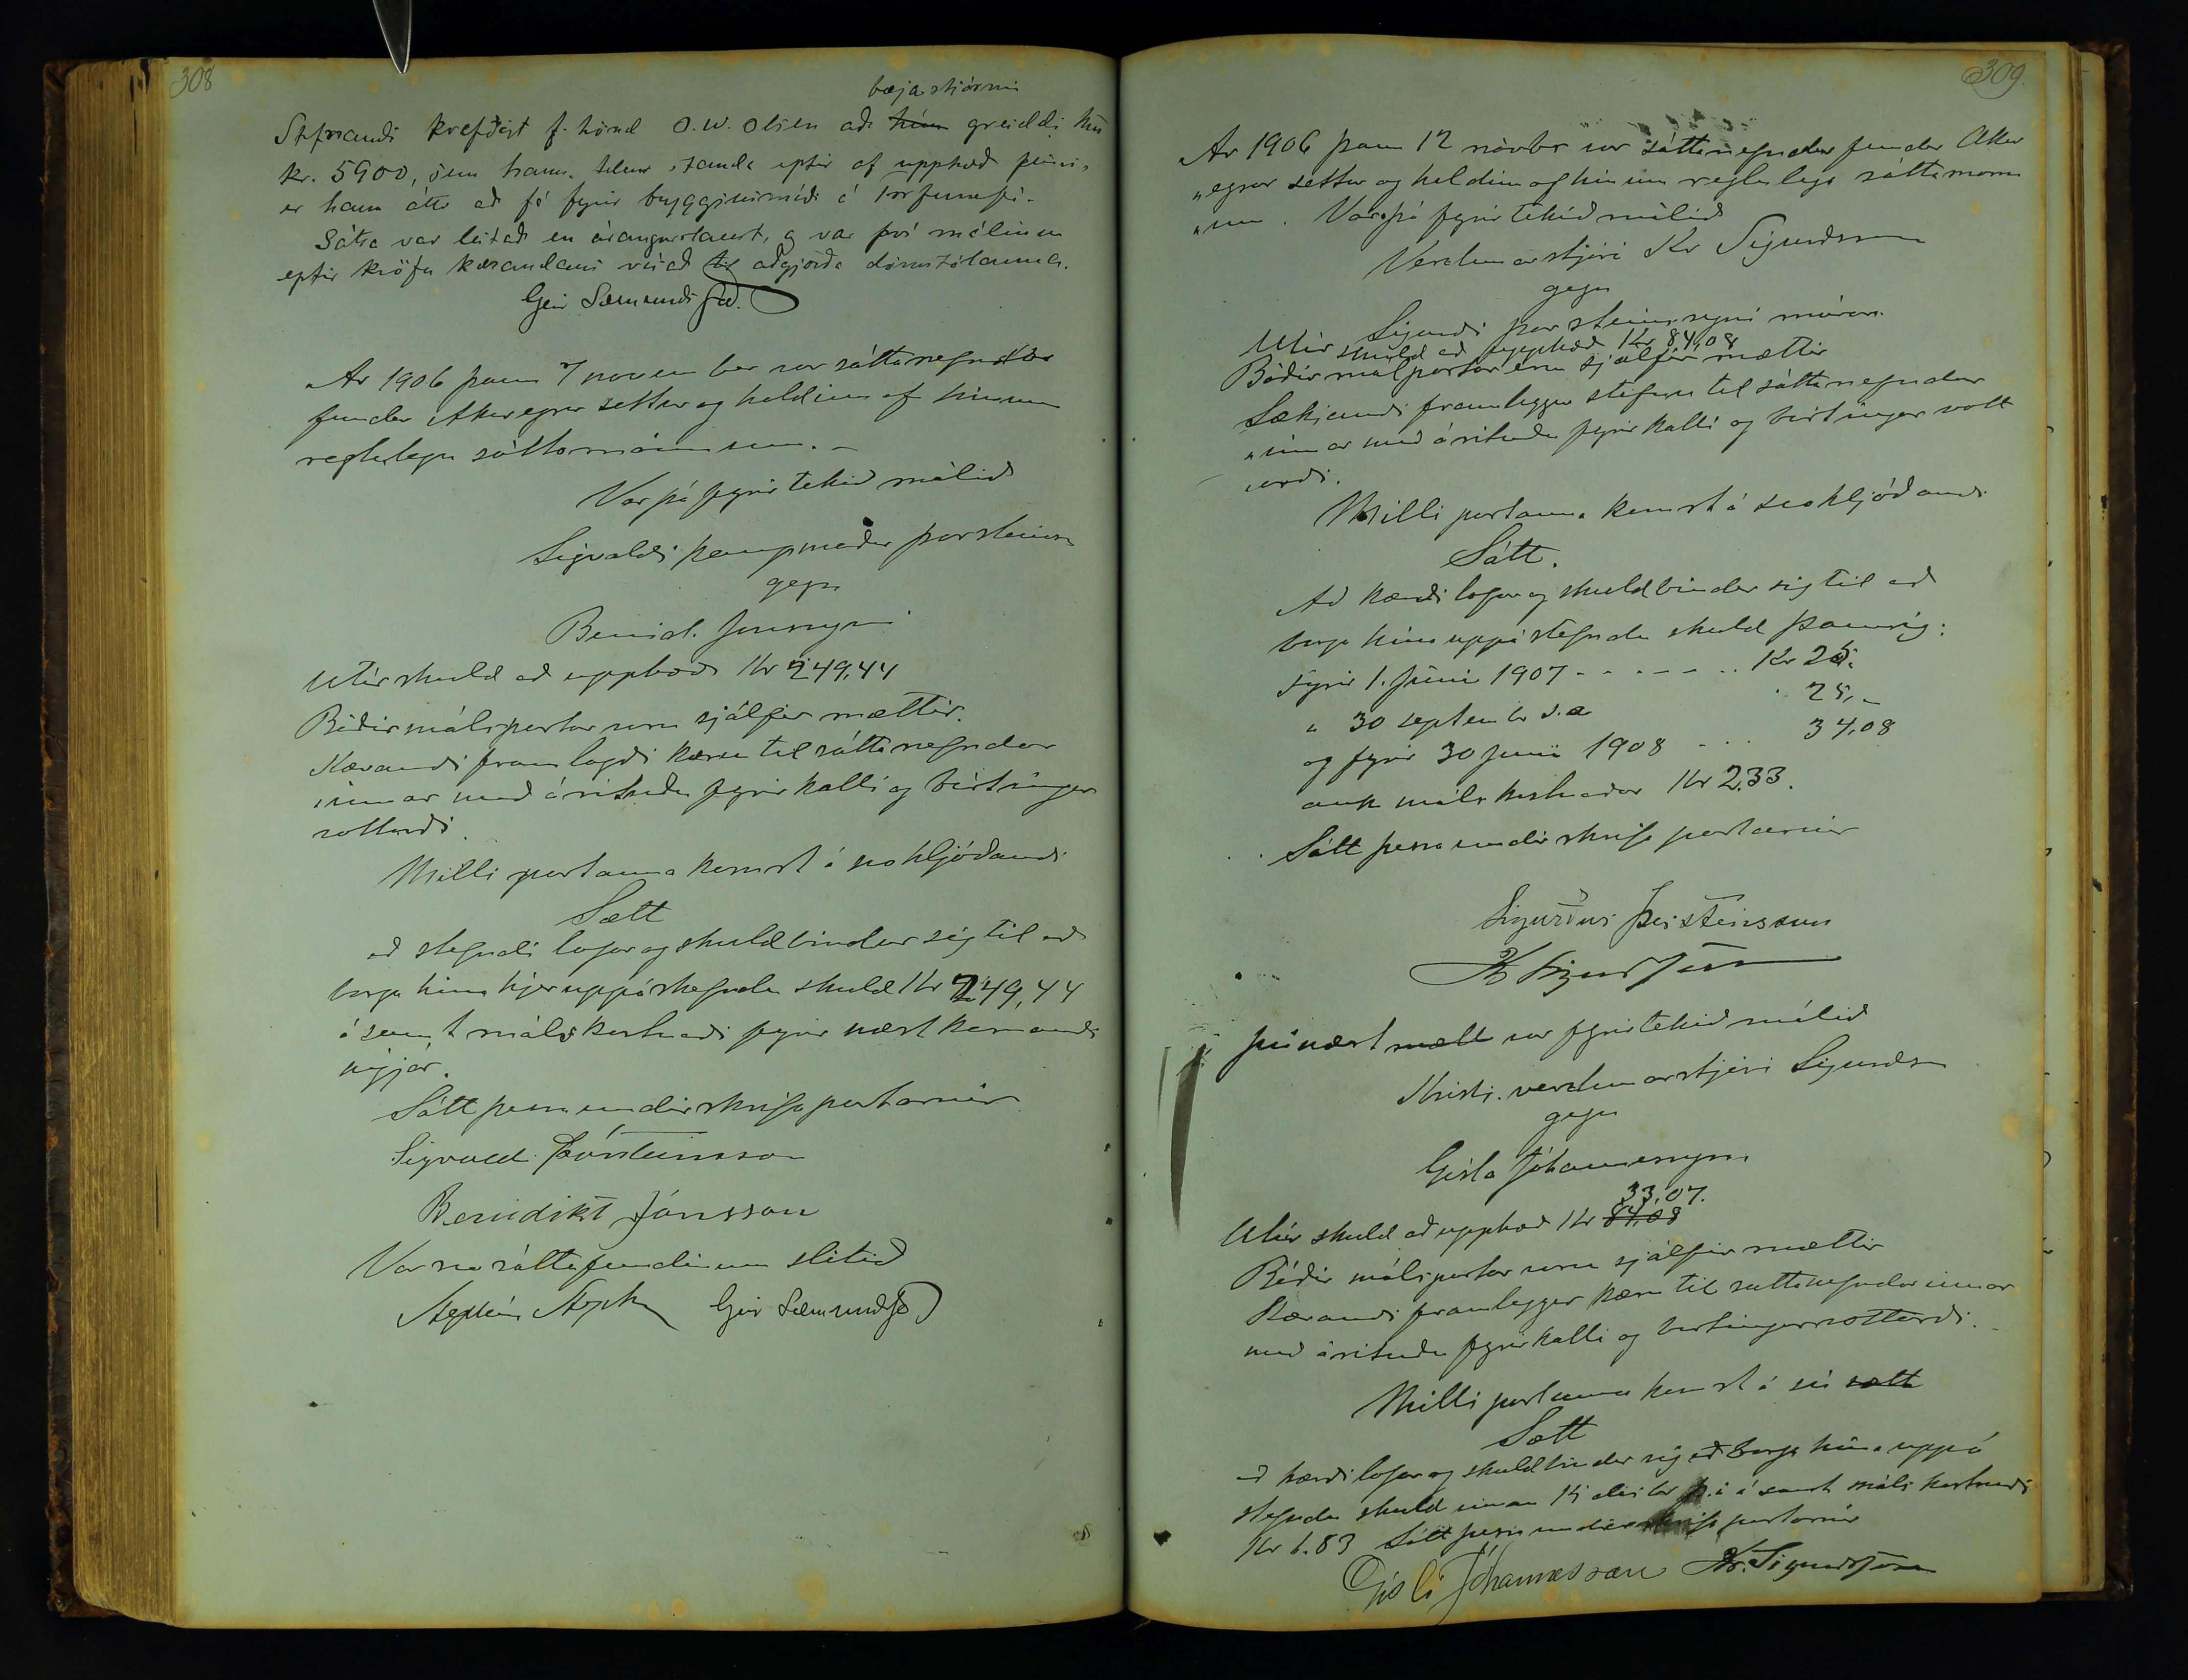 308
bæjastjórnin
Stefnandi krefðist f. hönd O.W. Olsen að hún greiddi hin
kr. 5900, sem hann telur standa eptir af upphæð þeirri,
er hann átti að fá fyrir byggingu á Torfunefi.
Sátta var leitað en árangurslaust, og var því málinu
eptir kröfu kærandans vísað til aðgjörða dómstólanna.
Geir Sæmundsson.
Ár 1906 þann 7 november var sáttanefndar
fundur Akureyrar settur og haldinn af hinum
reglulegu sáttamönnum. –
Var þá fyrir tekið málið
Sigvaldi kaupmaður Þorsteinsson
gegn
Benid. Jónssyni
Útúr skuld að upphæð Kr 249,44
Báðir málspartar voru sjálfir mættir.
Kærandi framlagði kæru til sáttanefndar
innar með árituðu fyrirkalli og birtingar
vottorði.
Milli partanna komst á svohljóðandi
Sætt
að stefndi lofar og skuldbindur sig til að
borga hina hjer uppástefndu skuld Kr 249,44
ásamt málskostnaði fyrir næstkomandi
nýjár.
Sátt þessa undirskrifa partarnir
Sigvald. Þorsteinsson
Benidikt Jónsson
Var svo sáttafundinum slitið
Stephán Steph Geir Sæmundsson
309.
Ár 1906 þann 12 nóvbr var sáttanefndar fundur Akur
„eyrar settur og haldinn af hinum reglulegu sáttamönn
„um. Var þá fyrirtekið málið
Verslunarstjóri Kr Sigurðsson
gegn
Sigurði Þorsteinssyni múrara.
Útúr skuld að upphæð Kr 84,08
Báðir málspartar eru sjálfir mættir
Sækjandi framleggur stefnu til sáttanefndar
„innar með árituðu fyrirkalli og birtingar vott
„orði.
Milli partanna komst á svohljóðandi
Sátt.
Að kærði lofar og skuldbindur sig til að
borga hina uppástefndu skuld þannig:
Fyrir 1. Júní 1907 - - - - - - Kr 25.
„ 30 september s.á 25,–
og fyrir 30 Júní 1908 - - - 34,08
auk málskostnaðar Kr 2,33.
Sátt þessa undirskrifa partarnir
Sigurður Þorsteinsson
Kr Sigurðsson
Þvínæst mætt var fyrirtekið málið
Kristj. verslunarstjóri Sigurðsson
gegn
Gísla Jóhannessyni
33,07.
Útúr skuld að upphæð Kr 84,08
Báðir málspartar voru sjálfir mættir
Kærandi framleggur kæru til sáttanefndarinnar
með árituðu fyrirkalli og birtingarvottorði.
Milli partanna komst á sú sætt
Sætt
að kærði lofar og skuldbindur sig að borga hina uppá
stefndu skuld innan 15 desbr þ.á ásamt máls kostnaði
Kr 1.83 Sátt þessa undirskrifa partarnir
Gísli Jóhannesson Kr. Sigurðsson